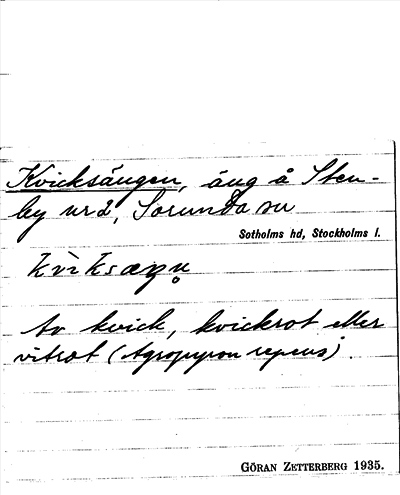 Kvicksängen, äng å Sten-
by nr 2, Sorunda sn
Sotholms hd, Stockholms l.
kvìksæŋn̥
Av kvick, kvickrot eller
vitrot (Agropyron repens).
GÖRAN ZETTERBERG 1935.